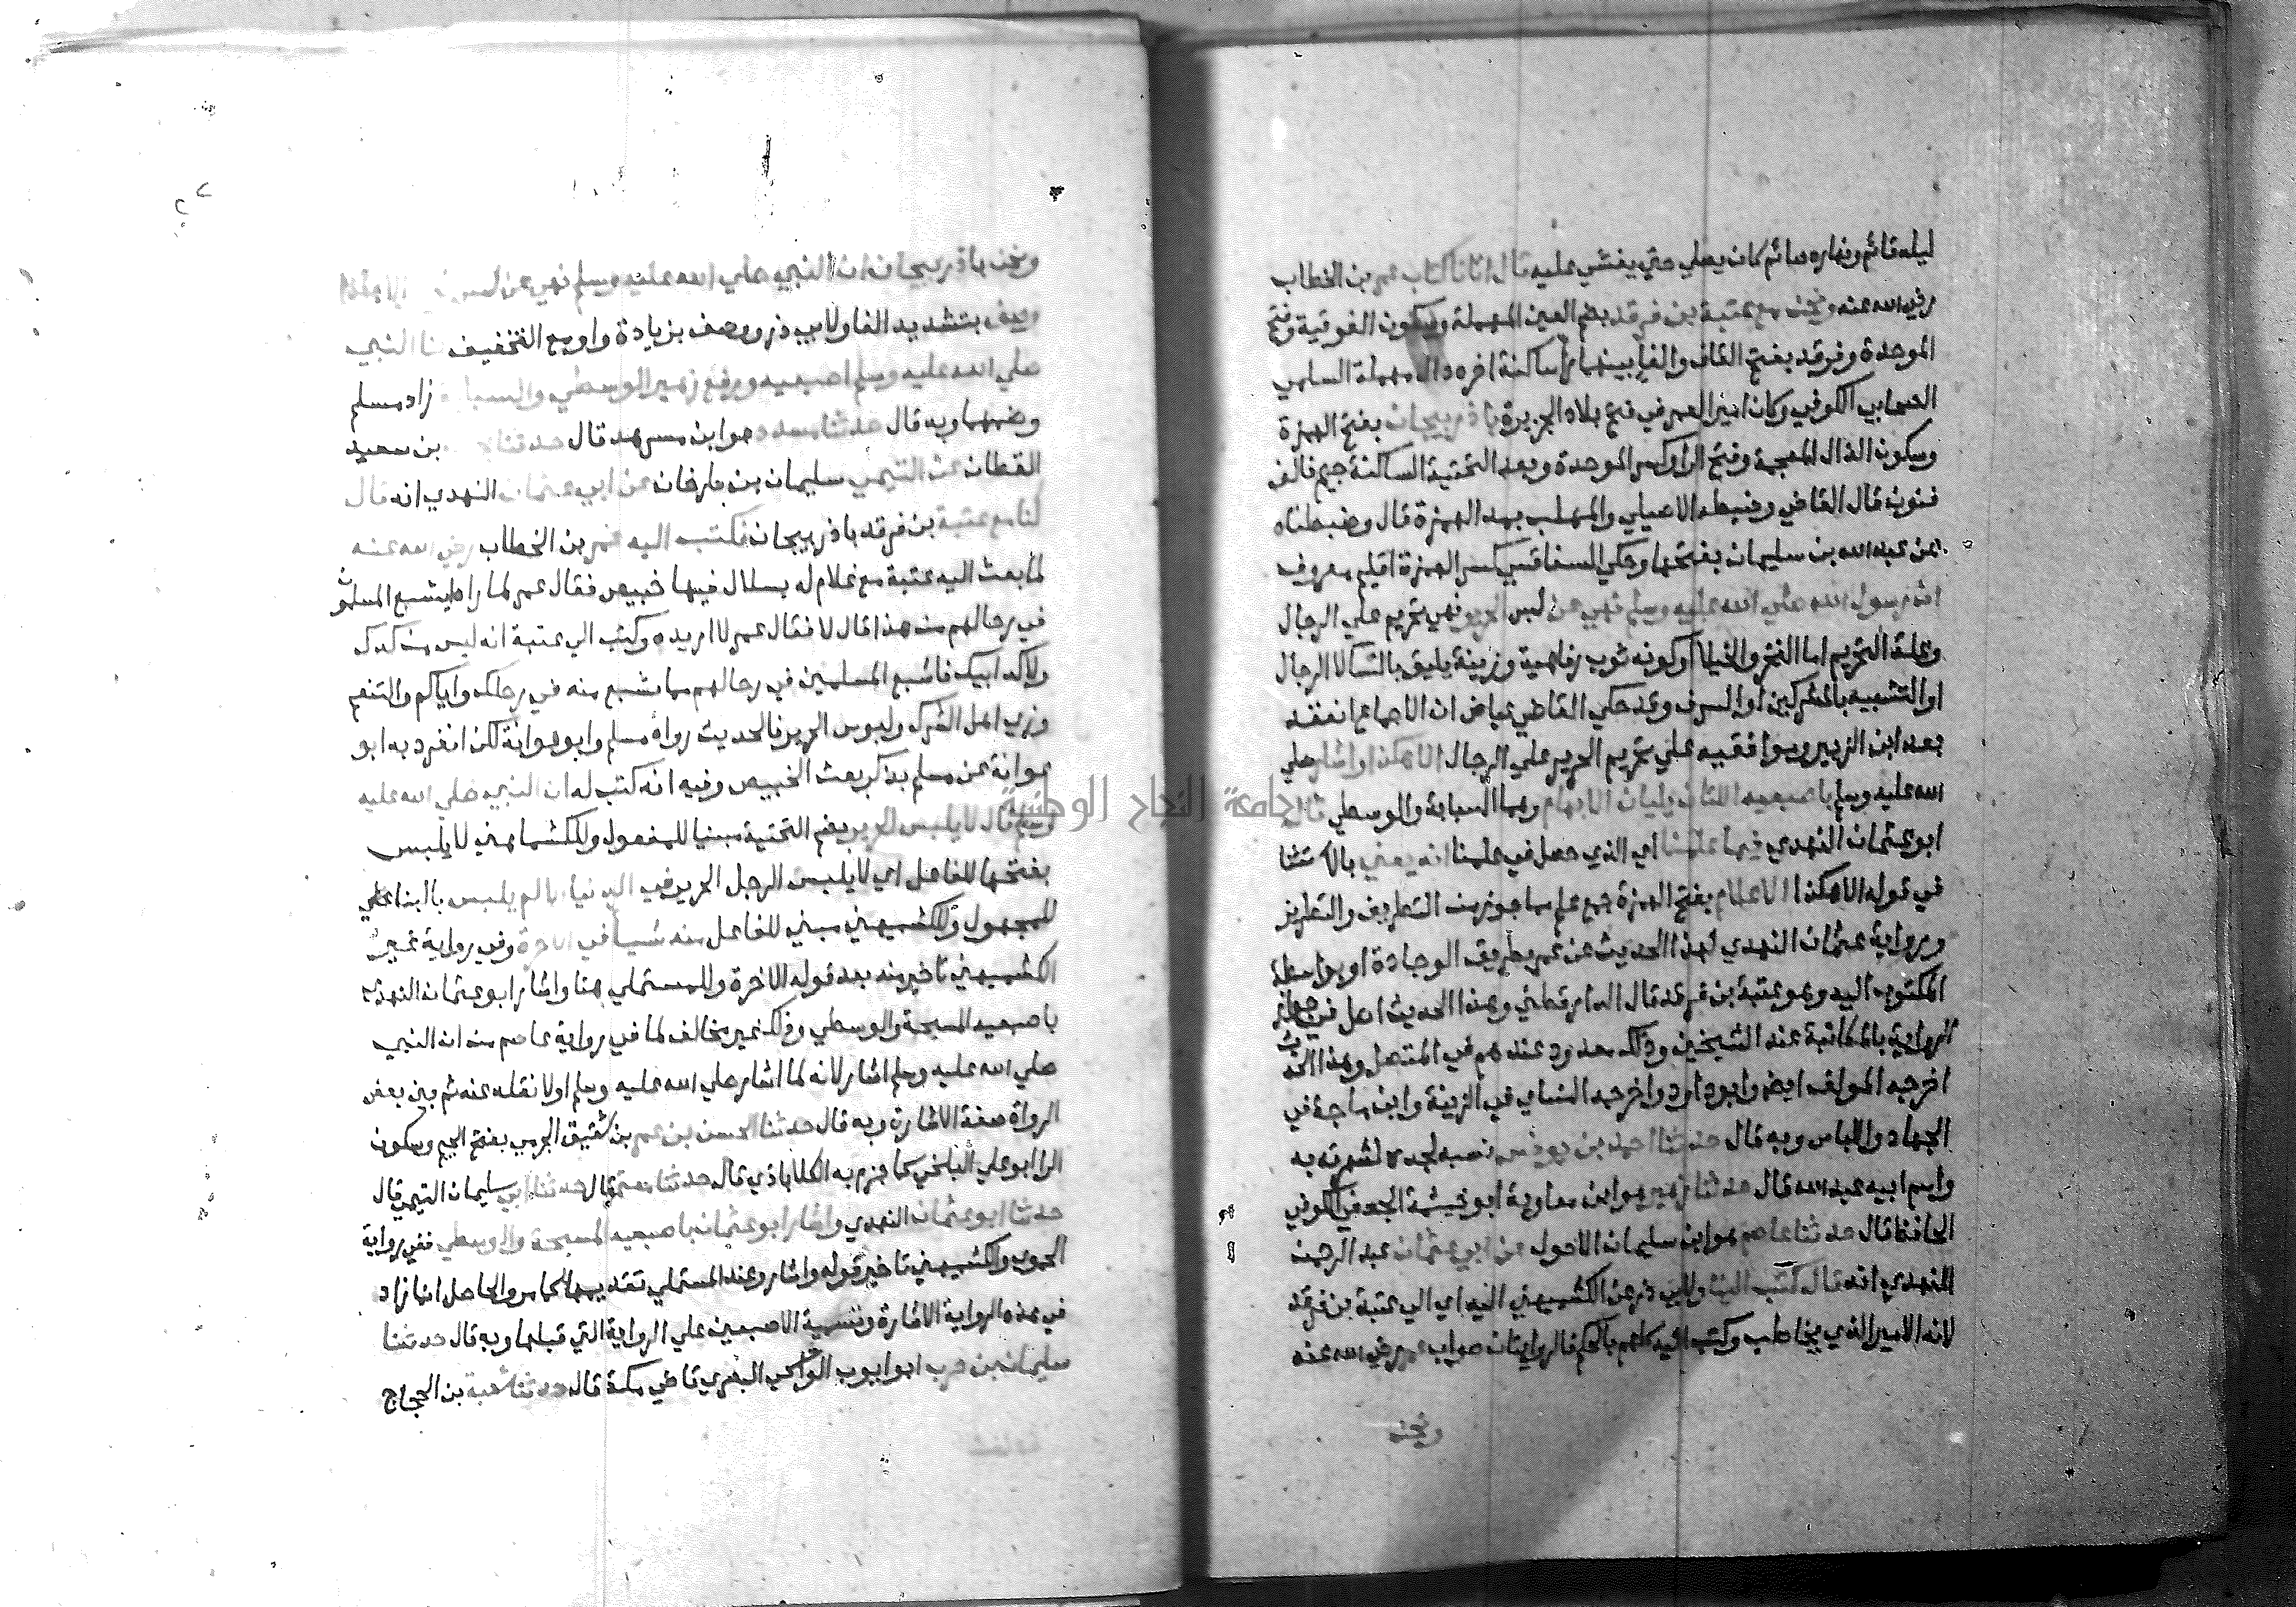 ليله قائم ونهاره صائم كان يصلي حتي يغشي عليه قال اتانا كتاب عمر بن الخطاب
رضي الله عنه ونحن مع عتبة بن فرقد بضم العين المهملة وسكون الفوقية وفتح
الموحدة وفرقد بفتح القاف والفا بينهما را ساكنة اخره دال مهملة السلمي
الصحابي الكوفي وكان امير العمر في فتح بلاد الجزيرة باذربيجان بفتح الهمزة
وسكون الذال المعجمة وفتح الرا وكسر الموحدة وبعد التحتية الساكنة جيم فالف
فنون قال القاضي وضبطه الاصيلي والمهلب بمد الهمزة قال وضبطناه
عن عبد الله بن سليمان بفتحها وحكي السفاقسي كسر الهمزة اقليم معروف
ان رسول الله صلي الله عليه وسلم نهي عن لبس الحرير نهي تحريم علي الرجال
وعلة التحريم اما الفخر والخيلا او كونه ثوب رفاهية وزينة يليق بالنسا لا الرجال
او التشبيه بالمشركين او السرف وقد حكي القاضي عياض ان الاجماع انعقد
بعد ابن الزبير وموافقيه علي تحريم الحرير علي الرجال الا هكذا واشار صلي
الله عليه وسلم باصبعيه اللتان يليان الابهام وهما السبابة والوسطي قال
ابو عثمان النهدي فيما علمنا اي الذي حصل في علمنا انه يعني بالاستثنا
في قوله الا هكذا الاعلام بفتح الهمزة جمع علم مما جوز من التطريف والتطريز
ورواية عثمان النهدي لهذا الحديث عن عمر بطريق الوجادة او بواسطة
المكتوب اليه وهو عتبة بن فرقد قال الدارقطني وهذا الحديث اصل في جواز
الرواية بالمكاتبة عند الشيخين وذلك معدود عندهم في المتصل وهذا الحديث
اخرجه المولف ايض وابو داود واخرجه النساي في الزينة وابن ماجة في
الجهاد واللباس وبه قال حدثنا احمد بن يونس نصبه لجده لشهرته به
واسم ابيه عبد الله قال حدثنا زهير هو ابن معاوية ابو خيثمة الجعفي الكوفي
الحافظ قال حدثنا عاصم هو ابن سليمان الاحول عن ابي عثمان عبد الرحمن
النهدي انه قال كتب الينا ولابي ذر عن الكشميهني اليه اي الي عتبة بن فرقد
لانه الامير الذي يخاطب وكتب اليه كلهم بالحكم فالروايتان صواب عمر رضي الله عنه
ونحن
ونحن باذربيجان ان النبي صلي الله عليه وسلم نهي عن لبس الا هكذا
وصف بتشديد الفا ولابي ذر ووصف بزيادة واو مع التخفيف لنا النبي
صلي الله عليه وسلم اصبعيه ورفع زهير الوسطي والسبابة زاد مسلم
وضمهما وبه قال حدثنا مسدد هو ابن مسرهد قال حدثنا بن سعيد
القطان عن التيمي سليمان بن طرخان عن ابي عثمان النهدي انه قال
كنا مع عتبة بن فرقد باذربيجان فكتب اليه عمر بن الخطاب رضي الله عنه
لما بعث اليه عتبة مع غلام له بسلال فيها خبيص فقال عمر لما راه ايشبع المسلمون
في رحالهم من هذا قال لا فقال عمر لا اريده وكتب الي عتبة انه ليس من كدك
ولا كد ابيك فاشبع المسلمين في رحالهم مما تشبع منه في رحلك واياكم والتنعم
وزي اهل الشرك ولبوس الحرير فالحديث رواه مسلم وابو عوانة لكن انفرد به ابو
عوانة عن مسلم بذكر بعث الخبيص وفيه انه كتب له ان النبي صلي الله عليه
وسلم قال لا يلبس الحرير بضم التحتية مبنيا للمفعول وللكشماهني لا يلبس
بفتحها للفاعل اي لا يلبس الرجل الحرير في الدنيا الا لم يلبس بالبنا علي
للمجهول وللكشميهني مبني للفاعل منه شيا في الاخرة وفي رواية غير
الكشميهني تاخير منه بعد قوله الاخرة وللمستملي هنا واشار ابو عثمان النهدي
باصبعيه المسبحة والوسطي وذلك غير مخالف لما في رواية عاصم من ان النبي
صلي الله عليه وسلم اشار لانه لما اشار صلي الله عليه وسلم اولا نقله عنه ثم بين بعض
الرواة صفة الاشارة وبه قال حدثنا الحسن بن عمر بن شقيق الجرمي بفتح الجيم وسكون
الرا ابو علي البلخي كما جزم به الكلاباذي قال حدثنا معتمر قال حدثنا ابي سليمان التيمي قال
حدثنا ابو عثمان النهدي واشار ابو عثمان باصبعيه المسبحة والوسطي ففي رواية
الحموي والكشميهني تاخير قوله واشار وعند المستملي تقديمها كما مر والحاصل انها زاد
في هذه الرواية الاشارة وتسمية الاصبعين علي الرواية التي قبلها وبه قال حدثنا
سليمان بن حرب ابو ايوب الواشحي البصري قاضي مكة قال حدثنا شعبة بن الحجاج
جامعة النجاح الوطنية